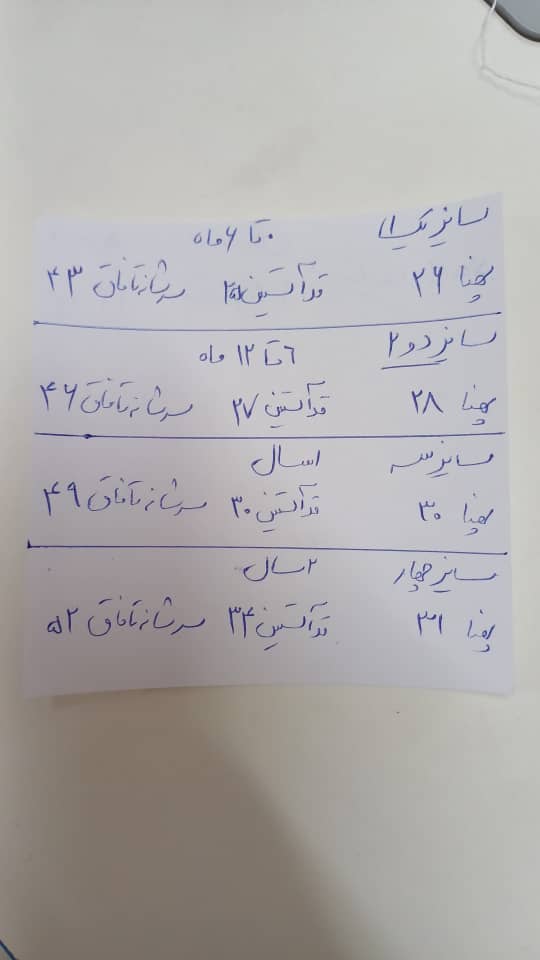 سایز یک ۱ ۰ تا ۶ ماه
پهنا ۲۶ قد آستین سرشانه تا فاق ۴۳
سایز دو ۲ ۶ تا ۱۲ ماه
پهنا ۲۸ قد آستین ۲۷ سرشانه تا فاق ۴۶
سایز سه ۱ سال
پهنا ۳۰ قد آستین ۳۰ سرشانه تا فاق ۴۹
سایز چهار ۲ سال
پهنا ۳۱ قد آستین ۳۴ سرشانه تا فاق ۵۲